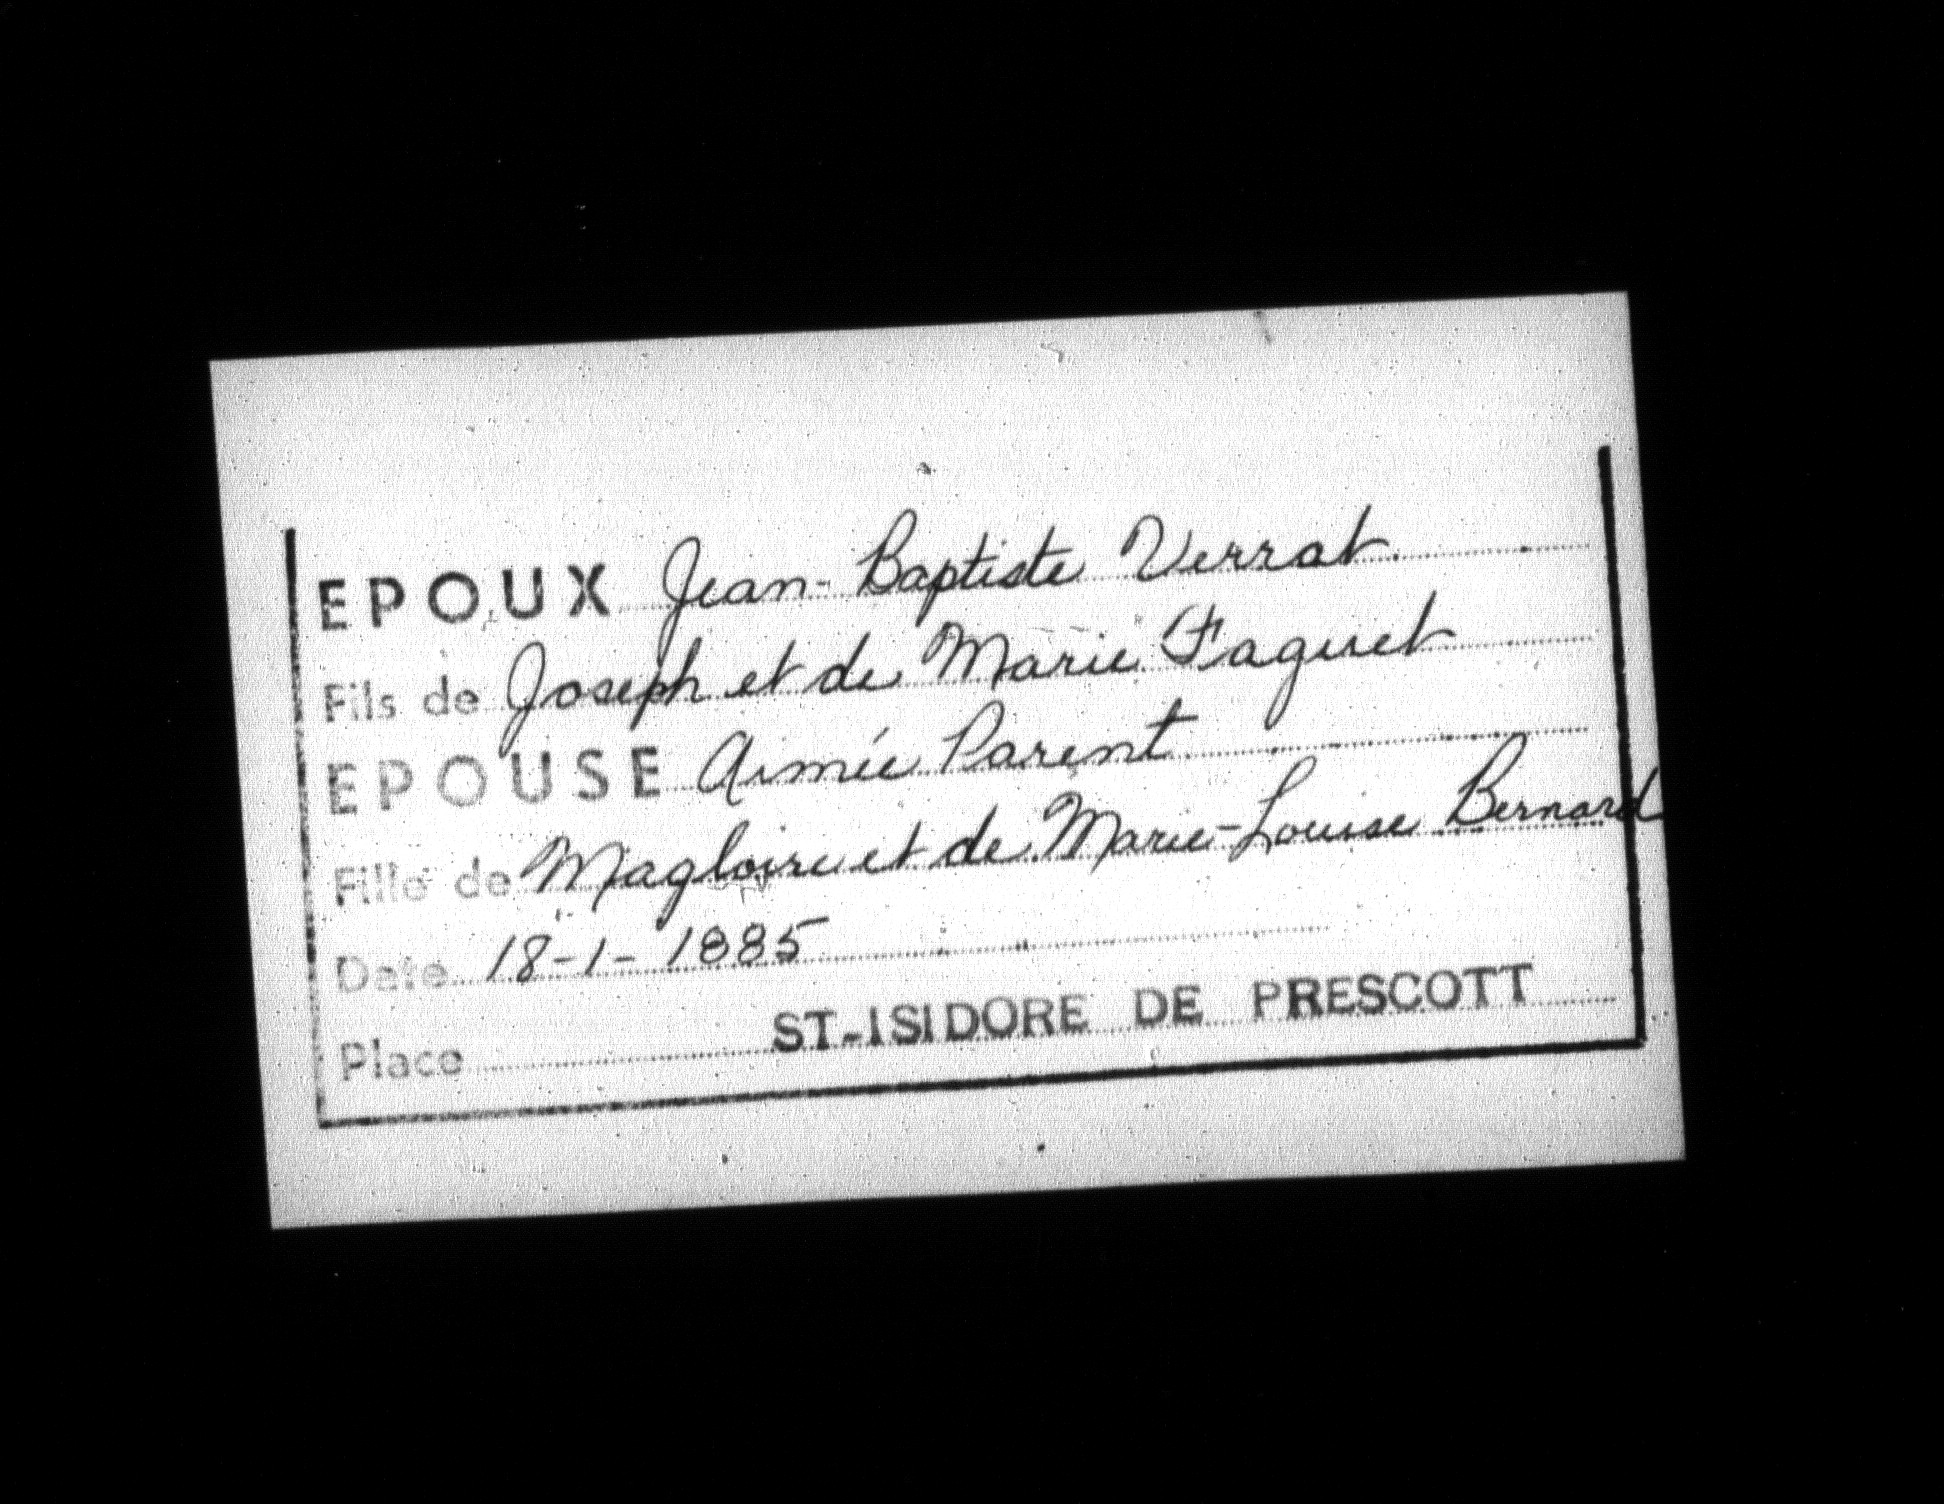 EPOUX Jean-Baptiste Verrat
Fils de Joseph et de Marie Faguet
EPOUSE Aimée Parent
Fille de Magloire et de Marie-Louise Bernard
Date 18-1-1885
Place ST-ISIDORE DE PRESCOTT